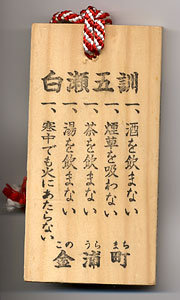 白瀬五訓
一、酒を飲まない
一、煙草を吸わない
一、茶を飲まない
一、湯を飲まない
一、寒中でも火にあたらない
このうらまち
金浦町